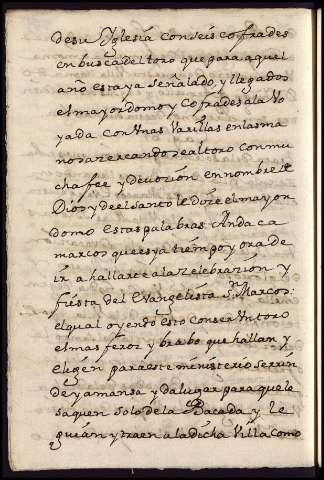 desu Yglesia con seis cofrades
en busca del toro que para aquel
año esta ya señalado, y llegados
el mayordomo y Cofrades a la Vo
yada con Vnas Varillas en las ma
nos azercandose al toro con mu
cha fee y devozion en nombre de
Dios y de el santo le dize el mayor
domo estas palabras Anda ca
marcos que es ya tiempo y ora de
ir a hallarce a la Zelebrazion y
fiesta del Evangelista Sn. Marcos:
el qual oyendo esto con ser Vn toro
el mas feroz y brabo que hallan y
eligen para este ministerio se rrin
de y amansa y da lugar para que le
saquen solo de la Bacada y le
guian y traen a la dicha Villa como